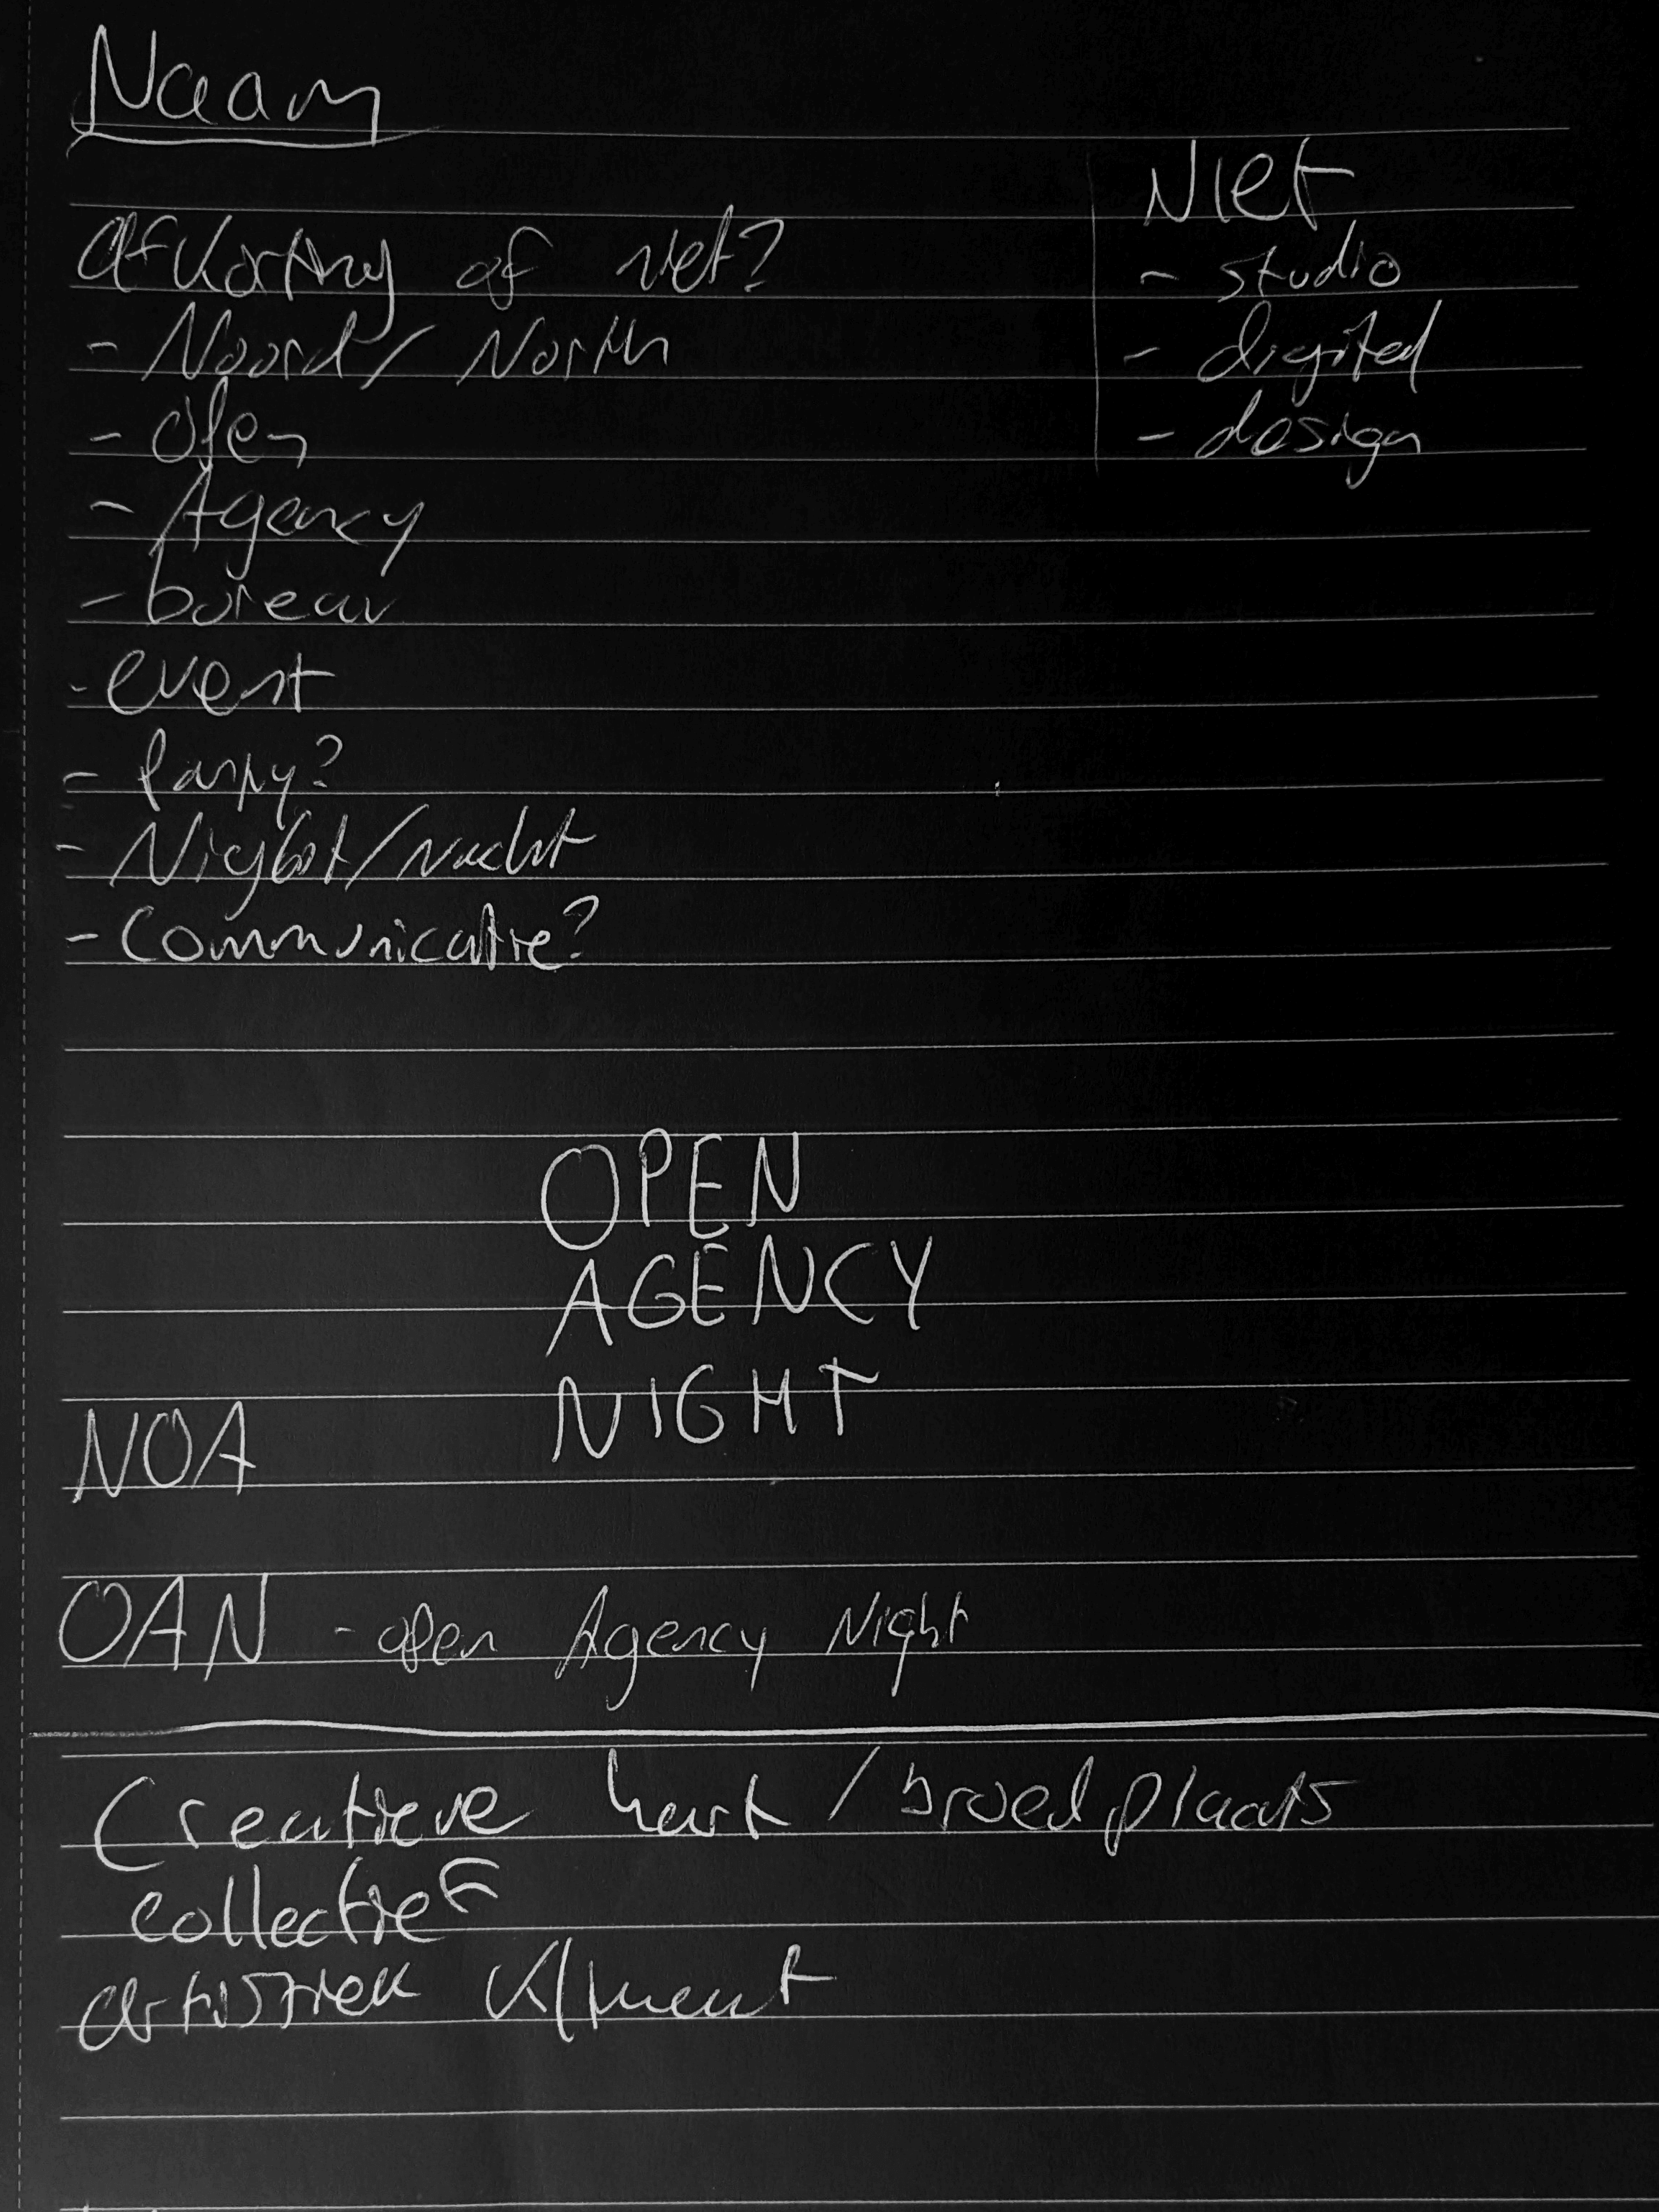 Naam
Afkorting of niet?
- Noord / North
- Open
- Agency
- bureau
- event
- Party?
- Night / Nacht
- Communicatie?
Niet
- studio
- digital
- design
OPEN
AGENCY
NIGHT
NOA
OAN - open Agency Night
Creatieve hart / broedplaats
collectief
artistiek klimaat